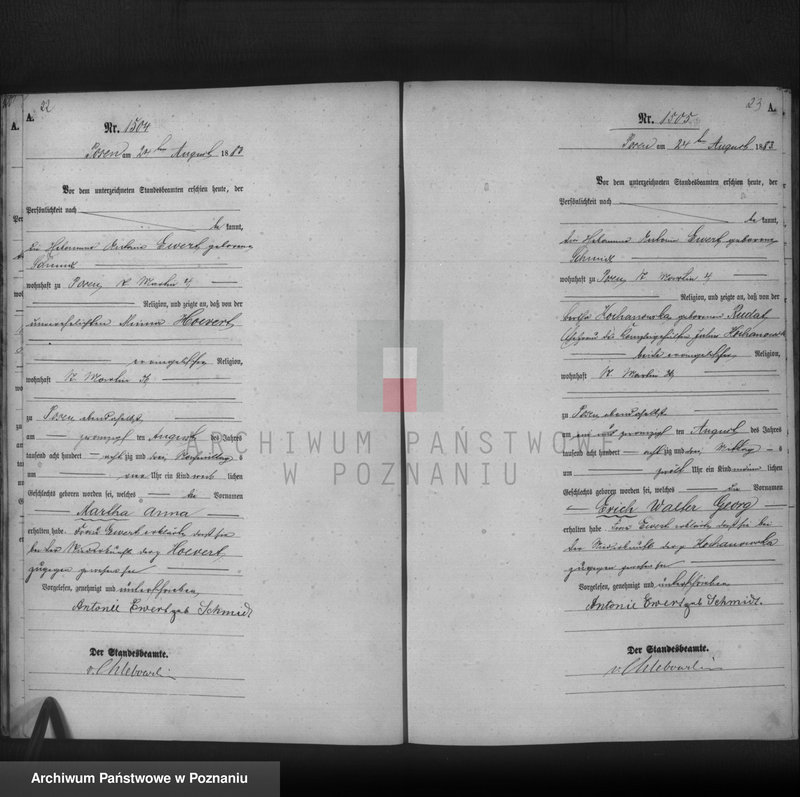 22
A.
A.
Nr. 1504
Posen am 24 ten August 1883
Vor dem unterzeichneten Standesbeamten erschien heute, der
Persönlichkeit nach
be kannt,
die Hebamme Antonie Ewert geborene
Schmidt
wohnhaft zu Posen, St Martin 4
Religion, und zeigte an, daß von der
unverehelichten Minna Hoevert,
evangelischer Religion,
wohnhaft St Martin
zu Posen ebendaselbst
am zwanzigsten August des Jahres
tausend acht hundert achtzig und drei, Nachmittags
um vier Uhr ein Kind weib lichen
Geschlechts geboren worden sei, welches die Vornamen
Martha Anna
erhalten habe. Frau Ewert erklärte, daß sie
bei der Niederkunft der p Hoevert
zugegen gewesen sei
Vorgelesen, genehmigt und unterschrieben
Antonie Ewert geb Schmidt
Der Standesbeamte.
v. Chlebowski
23
A.
Nr. 1505
Posen am 24 ten August 1883
Vor dem unterzeichneten Standesbeamten erschien heute, der
Persönlichkeit nach
be kannt,
die Hebamme Antonie Ewert geborene
Schmidt
wohnhaft zu Posen, St Martin 4
Religion, und zeigte an, daß von der
Hochanowska geborenen Rudat
Ehefrau des Hochanowski
beide evangelischer Religion,
wohnhaft St Martin
zu Posen ebendaselbst
am ein und zwanzigsten August des Jahres
tausend acht hundert achtzig und drei, Mittags
um zwölf Uhr ein Kind männ lichen
Geschlechts geboren worden sei, welches die Vornamen
Erich Walter Georg
erhalten habe. Frau Ewert erklärte, daß sie bei
der Niederkunft der p Hochanowska
zugegen gewesen sei
Vorgelesen, genehmigt und unterschrieben
Antonie Ewert geb Schmidt.
Der Standesbeamte.
v. Chlebowski
ARCHIWUM PAŃSTWOWE
W POZNANIU
Archiwum Państwowe w Poznaniu